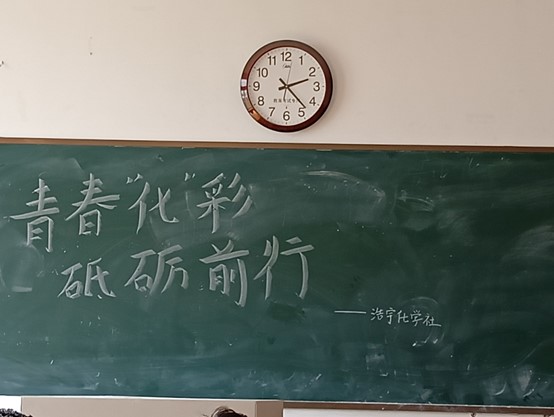 12
1
2
3
4
5
6
7
8
9
10
11
青春"化"彩
砥砺前行
——浩宇化学社